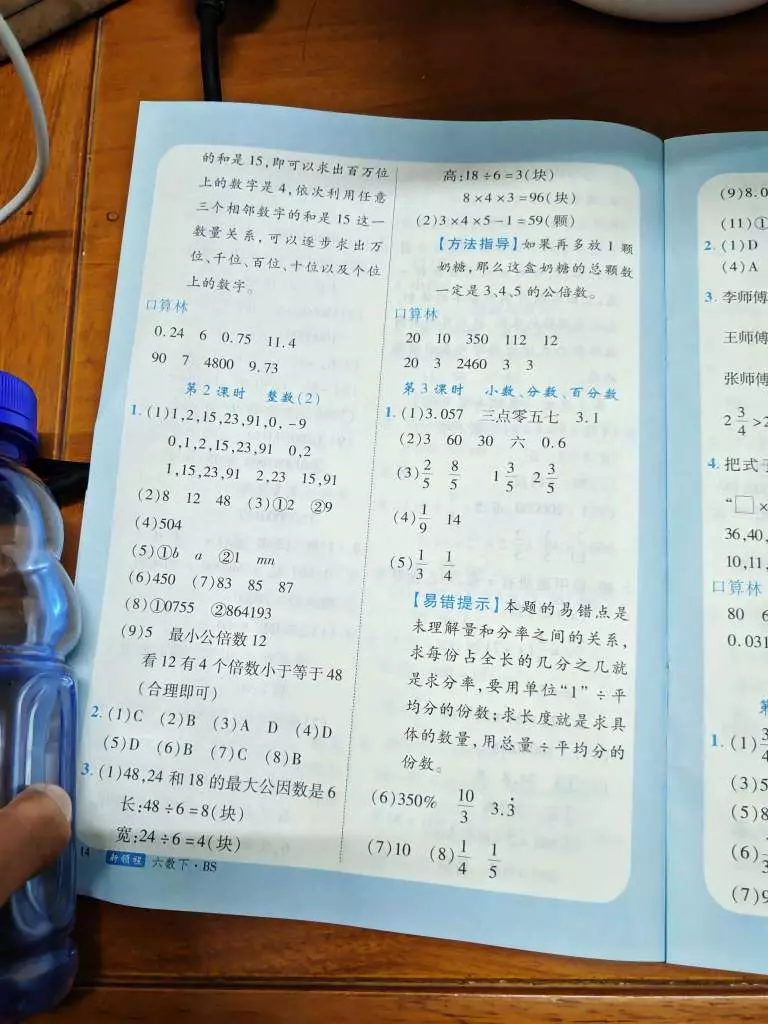 的和是15,即可以求出百万位
上的数字是4,依次利用任意
三个相邻数字的和是15这一
数量关系,可以逐步求出万
位、千位、百位、十位以及个位
上的数字。
口算林
0.24 6 0.75 11.4
90 7 4800 9.73
第2课时 整数(2)
1.(1)1,2,15,23,91,0,-9
0,1,2,15,23,91 0,2
1,15,23,91 2,23 15,91
(2)8 12 48 (3)①2 ②9
(4)504
(5)①b a ②1 mn
(6)450 (7)83 85 87
(8)①0755 ②864193
(9)5 最小公倍数12
看12有4个倍数小于等于48
(合理即可)
2.(1)C (2)B (3)A D (4)D
(5)D (6)B (7)C (8)B
3.(1)48,24和18的最大公因数是6
长:48÷6=8(块)
宽:24÷6=4(块)
14 新领程 六数下·BS
高:18÷6=3(块)
8×4×3=96(块)
(2)3×4×5-1=59(颗)
【方法指导】如果再多放1颗
奶糖,那么这盒奶糖的总颗数
一定是3、4、5的公倍数。
口算林
20 10 350 112 12
20 3 2460 3 3
第3课时 小数、分数、百分数
1.(1)3.057 三点零五七 3.1
(2)3 60 30 六 0.6
(3)2/5 8/5 1 3/5 2 3/5
(4)1/9 14
(5)1/3 1/4
【易错提示】本题的易错点是
未理解量和分率之间的关系,
求每份占全长的几分之几就
是求分率,要用单位“1”÷平
均分的份数;求长度就是求具
体的数量,用总量÷平均分的
份数。
(6)350% 10/3 3.3̇
(7)10 (8)1/4 1/5
(9)8.0
(11)①
2.(1)D
(4)A
3.李师傅
王师傅
张师傅
2 3/4>2
4.把式子
“□×
36,40,
10,11,
口算林
80 6
0.031
第
1.(1)3/4
(3)5
(5)8
(6)
(7)9